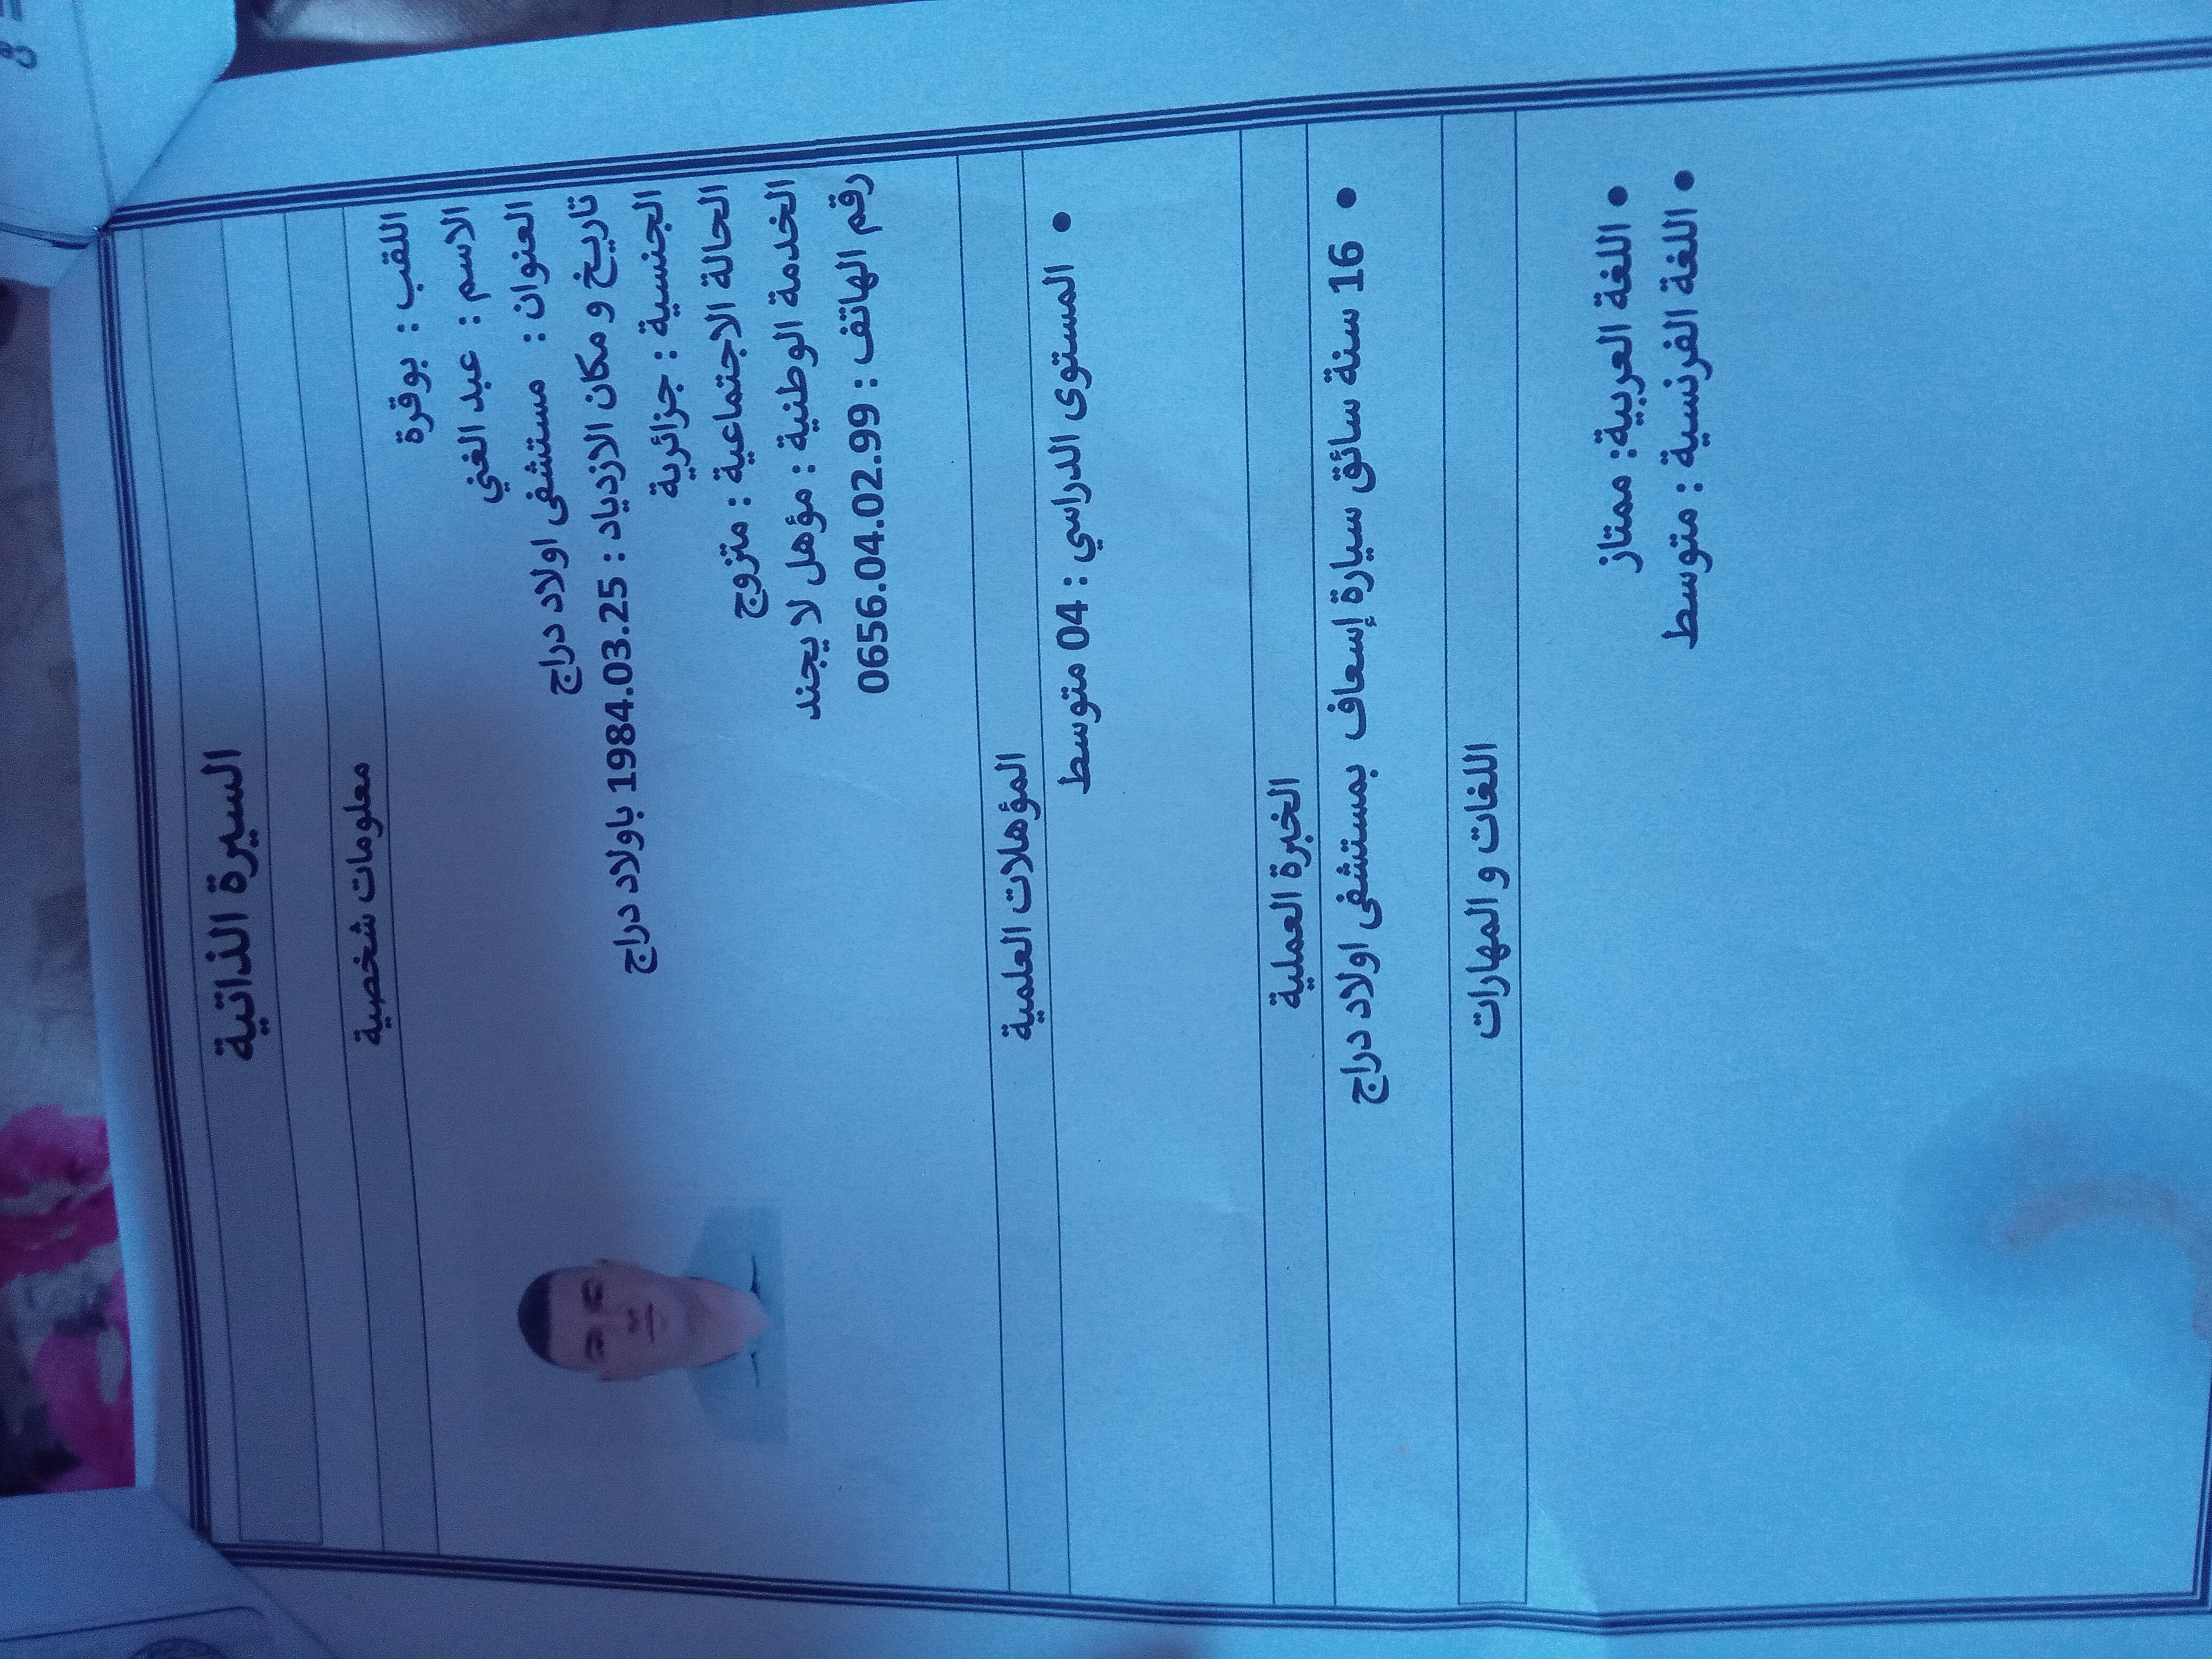 السيرة الذاتية
معلومات شخصية
اللقب : بوقرة
الاسم : عبد الغني
العنوان : مستشفى اولاد دراج
تاريخ و مكان الازدياد : 1984.03.25 باولاد دراج
الجنسية : جزائرية
الحالة الاجتماعية : متزوج
الخدمة الوطنية : مؤهل لا يجند
رقم الهاتف : 0656.04.02.99
المؤهلات العلمية
● المستوى الدراسي : 04 متوسط
الخبرة العملية
● 16 سنة سائق سيارة إسعاف بمستشفى اولاد دراج
اللغات و المهارات
● اللغة العربية: ممتاز
● اللغة الفرنسية : متوسط